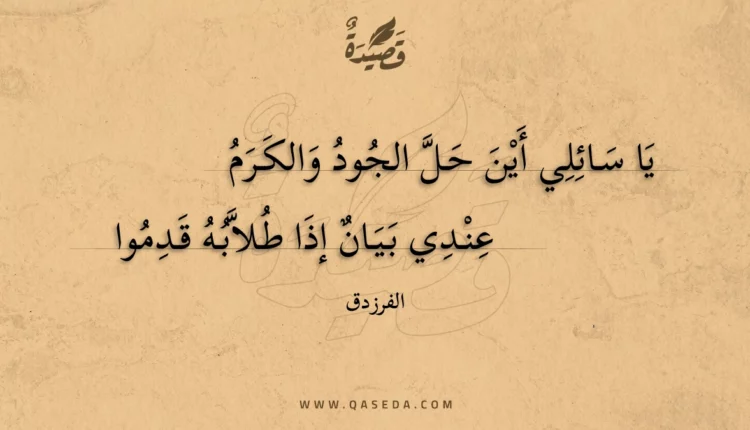 قَصِيدَةٌ
يَا سَائِلِي أَيْنَ حَلَّ الجُودُ وَالكَرَمُ
عِنْدِي بَيَانٌ إذَا طُلاَّبُهُ قَدِمُوا
الفرزدق
WWW.QASEDA.COM